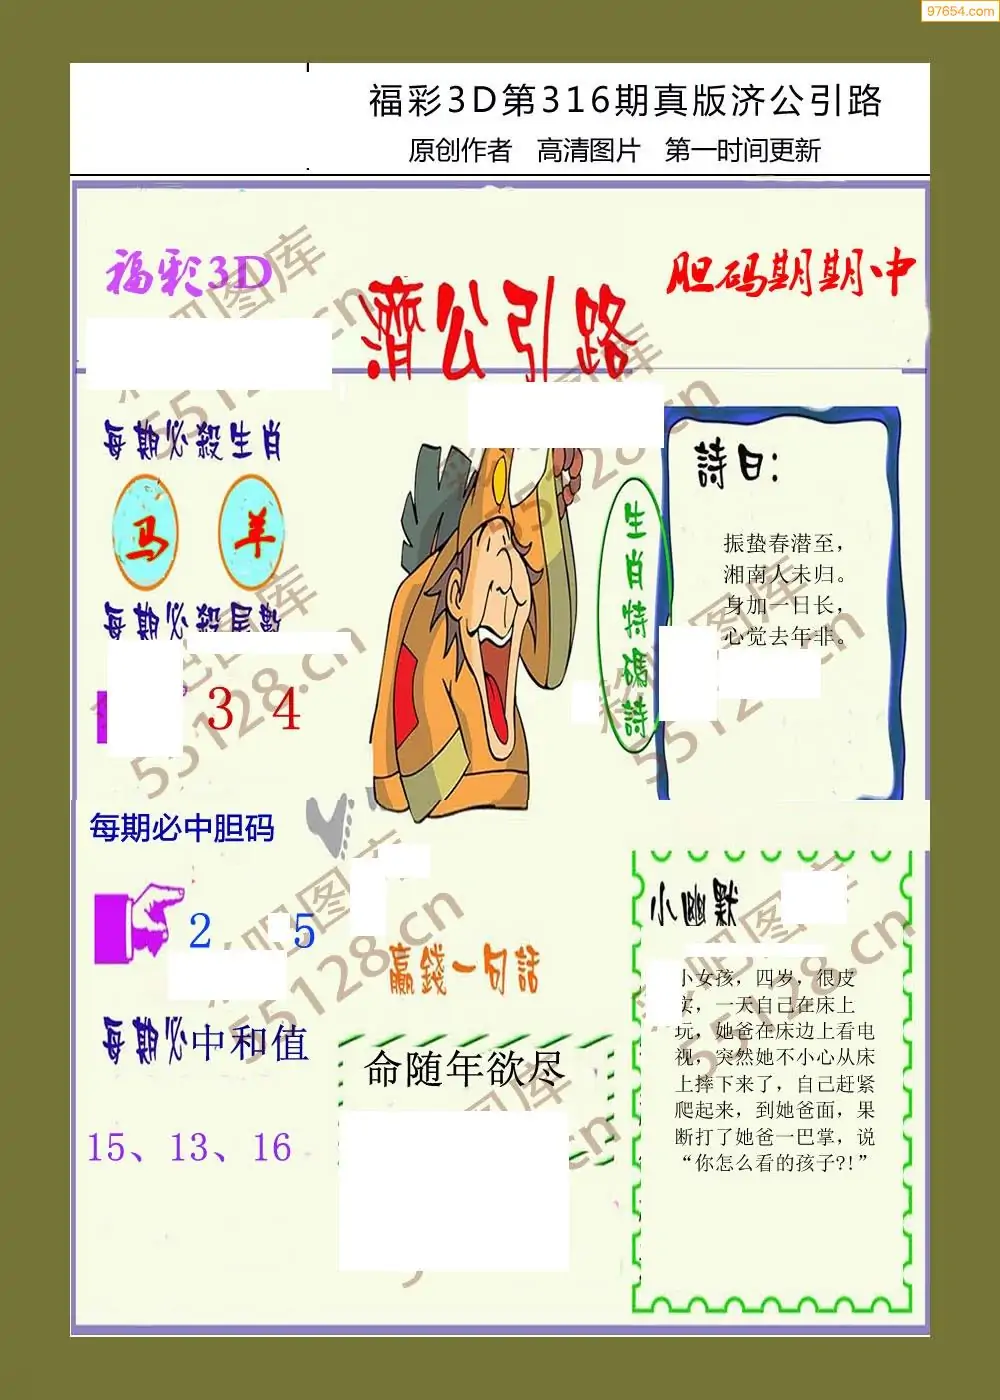 97654.com
福彩3D第316期真版济公引路
原创作者 高清图片 第一时间更新
福彩3D
濟公引路
胆码期期中
每期必殺生肖
马 羊
每期必殺尾數
3 4
生肖特碼詩
詩曰：
振蛰春潜至，
湘南人未归。
身加一日长，
心觉去年非。
每期必中胆码
2 5
每期必中和值
15、13、16
贏錢一句話
命随年欲尽
小幽默
小女孩，四岁，很皮
实，一天自己在床上
玩，她爸在床边上看电
视，突然她不小心从床
上摔下来了，自己赶紧
爬起来，到她爸面，果
断打了她爸一巴掌，说
“你怎么看的孩子?!”
彩吧图库
55128.cn